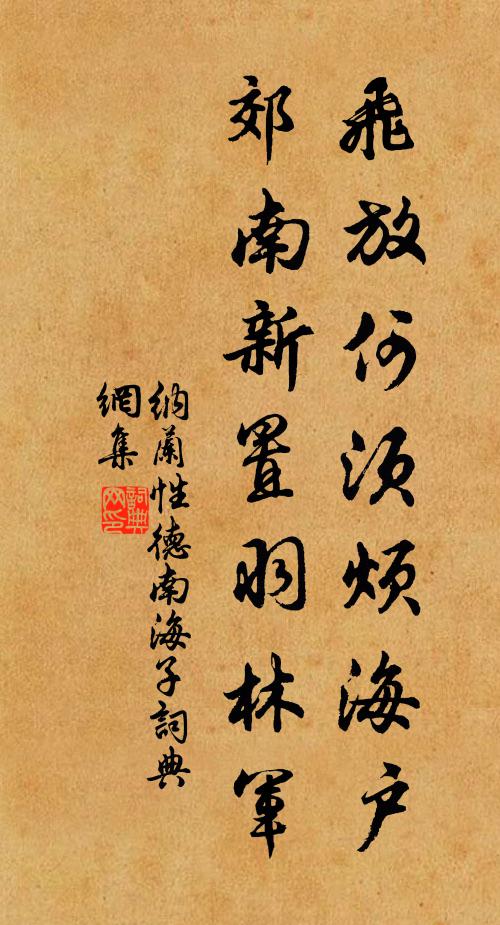 飛放何須煩海戶
郊南新置羽林軍
納蘭性德南海子詞典
網集
詞典
网印